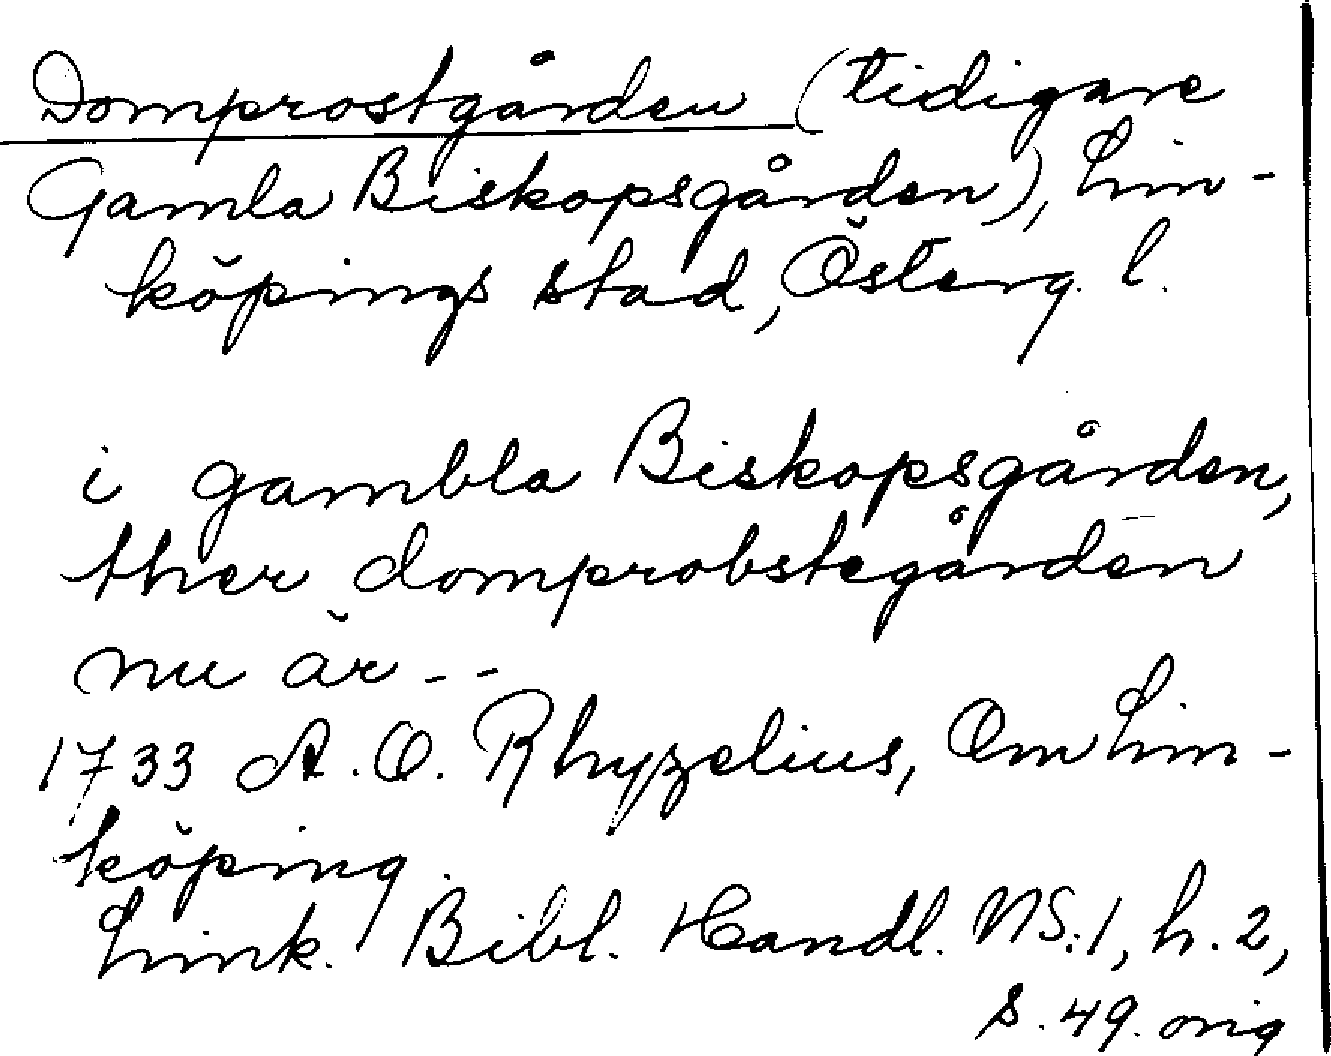 Domprostgården (tidigare
Gamla Biskopsgården), Lin-
köpings stad, Österg. l.
i gambla Biskopsgården,
ther domprobstegården
nu är --
1733 A. O. Rhyzelius, Om Lin-
köping.
Link. Bibl. Handl. NS:1, h. 2,
s. 49. orig